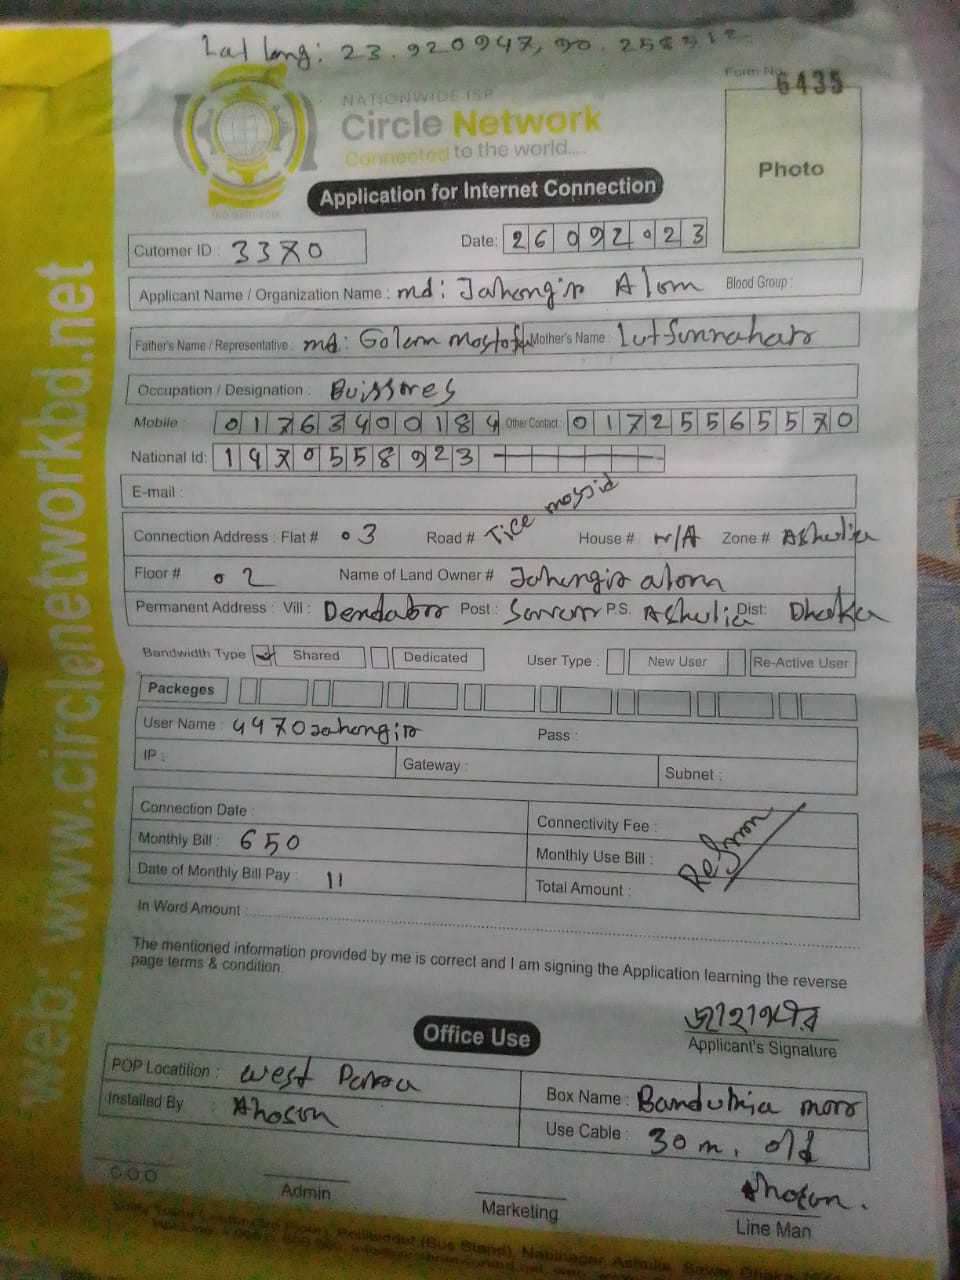 Lat long: 23.920947, 90.258512
Form No. 6435
NATIONWIDE ISP
Circle Network
Connected to the world....
Photo
Application for Internet Connection
Cutomer ID : 3370
Date: 26092023
Applicant Name / Organization Name : md: Jahangir Alom Blood Group :
Father's Name / Representative : md: Golam Mostofa Mother's Name : Lutfunnahar
Occupation / Designation : Buissnes
Mobile : 01763400184 Other Contact : 01725565570
National Id: 1970558923
E-mail :
Connection Address : Flat # 03 Road # Tice mosjid House # N/A Zone # Ashulia
Floor # 02 Name of Land Owner # Jahengir alom
Permanent Address : Vill : Dendabor Post : Savar P.S. Ashulia Dist: Dhaka
Bandwidth Type Shared Dedicated User Type : New User Re-Active User
Packeges
User Name : 4470jahangir Pass :
IP : Gateway : Subnet :
Connection Date : Connectivity Fee :
Monthly Bill : 650 Monthly Use Bill :
Date of Monthly Bill Pay : 11 Total Amount :
In Word Amount :
The mentioned information provided by me is correct and I am signing the Application learning the reverse
page terms & condition.
জাহাঙ্গীর
Applicant's Signature
Office Use
POP Locatilion : West Para Box Name : Bandutkia morr
Installed By : Ahoson Use Cable : 30 m, old
Ahoson.
C.O.O Admin Marketing Line Man
web: www.circlenetworkbd.net